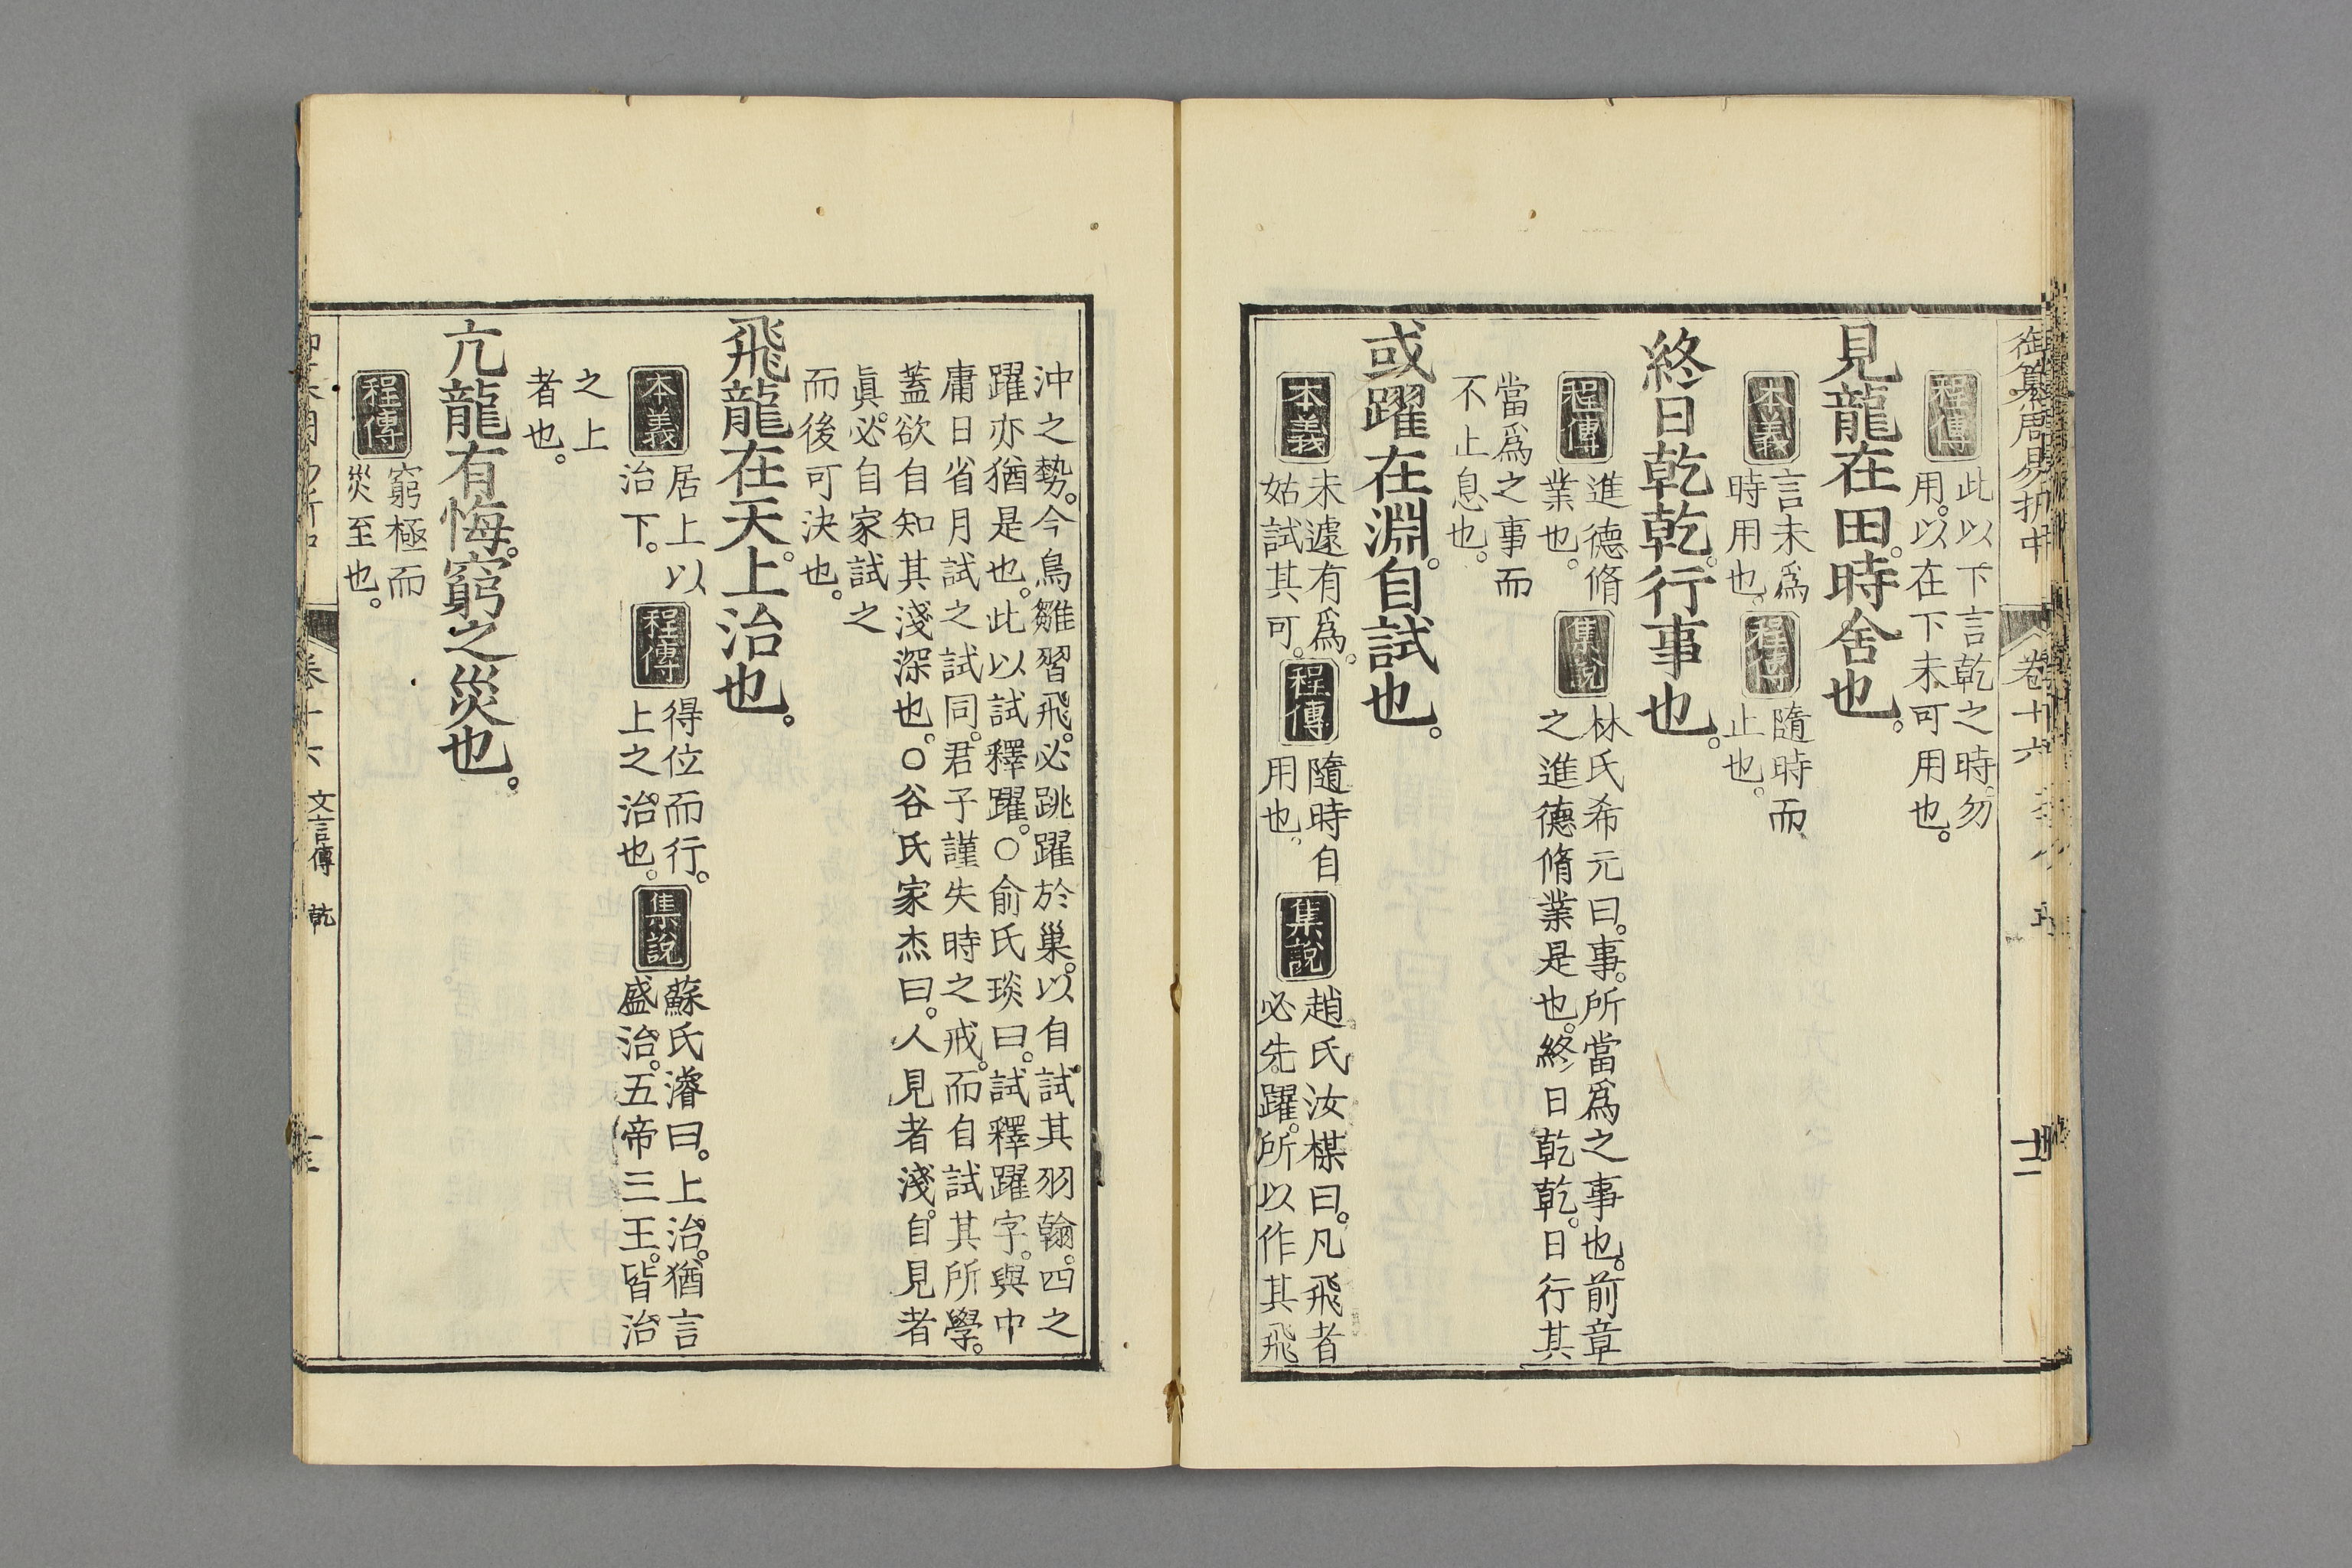 御纂周易折中 卷十六 十二
程傳
此以下言乾之時。勿
用。以在下未可用也。
見龍在田。時舍也。
本義
言未爲
時用也。
程傳
隨時而
止也。
終日乾乾。行事也。
程傳
進德脩
業也。
集說
林氏希元曰。事。所當爲之事也。前章
之進德脩業是也。終日乾乾。日行其
當爲之事而
不止息也。
或躍在淵。自試也。
本義
未遽有爲。
姑試其可。
程傳
隨時自
用也。
集說
趙氏汝楳曰。凡飛者
必先躍。所以作其飛
沖之勢。今鳥雛習飛。必跳躍於巢。以自試其羽翰。四之
躍亦猶是也。此以試釋躍。○俞氏琰曰。試釋躍字。與中
庸日省月試之試同。君子謹失時之戒。而自試其所學。
蓋欲自知其淺深也。○谷氏家杰曰。人見者淺。自見者
眞。必自家試之
而後可決也。
飛龍在天。上治也。
本義
居上以
治下。
程傳
得位而行。
上之治也。
集說
蘇氏濬曰。上治。猶言
盛治。五帝三王。皆治
之上
者也。
亢龍有悔。窮之災也。
程傳
窮極而
災至也。
卷十六 文言傳 乾 十三